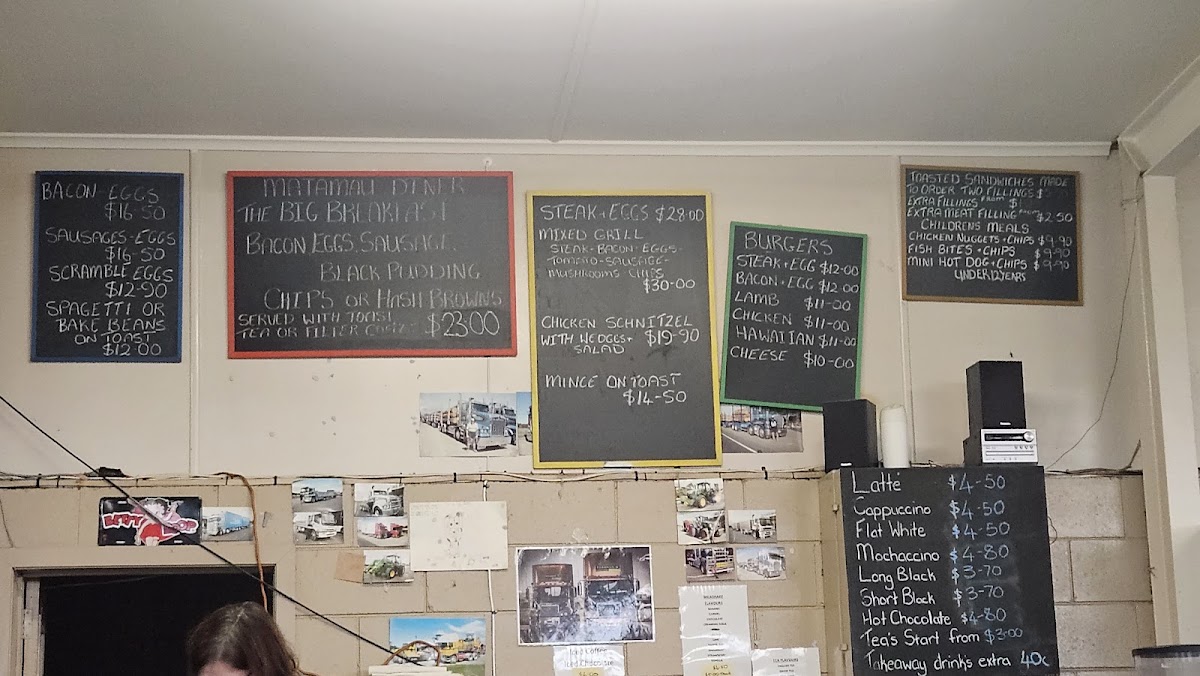 BACON-EGGS
$16-50
SAUSAGES-EGGS
$16-50
SCRAMBLE EGGS
$12-90
SPAGETTI OR
BAKE BEANS
ON TOAST
$12-00
MATAMAU DINER
THE BIG BREAKFAST
BACON EGGS. SAUSAGE.
BLACK PUDDING
CHIPS OR HASH BROWNS
SERVED WITH TOAST
TEA OR FILTER COFFEE $23.00
STEAK+EGGS $28-00
MIXED GRILL
STEAK-BACON-EGGS-
TOMATO-SAUSAGE-
MUSHROOMS-CHIPS
$30-00
CHICKEN SCHNITZEL
WITH WEDGES+ $19-90
SALAD
MINCE ON TOAST
$14-50
BURGERS
STEAK+EGG $12-00
BACON+EGG $12-00
LAMB $11-00
CHICKEN $11-00
HAWAIIAN $11-00
CHEESE $10-00
TOASTED SANDWICHES MADE
TO ORDER TWO FILLINGS
EXTRA FILLINGS FROM
EXTRA MEAT FILLING FROM $2-50
CHILDRENS MEALS
CHICKEN NUGGETS+CHIPS $9-90
FISH BITES+CHIPS $9-90
MINI HOT DOG+CHIPS $9-90
UNDER 12 YEARS
Latte $4-50
Cappuccino $4-50
Flat White $4-50
Mochaccino $4-80
Long Black $3-70
Short Black $3-70
Hot Chocolate $4-80
Tea's Start from $3.00
Takeaway drink's extra 40c
BETTY BOOP
MILKSHAKE
FLAVOURS
Iced Coffee
Iced Chocolate